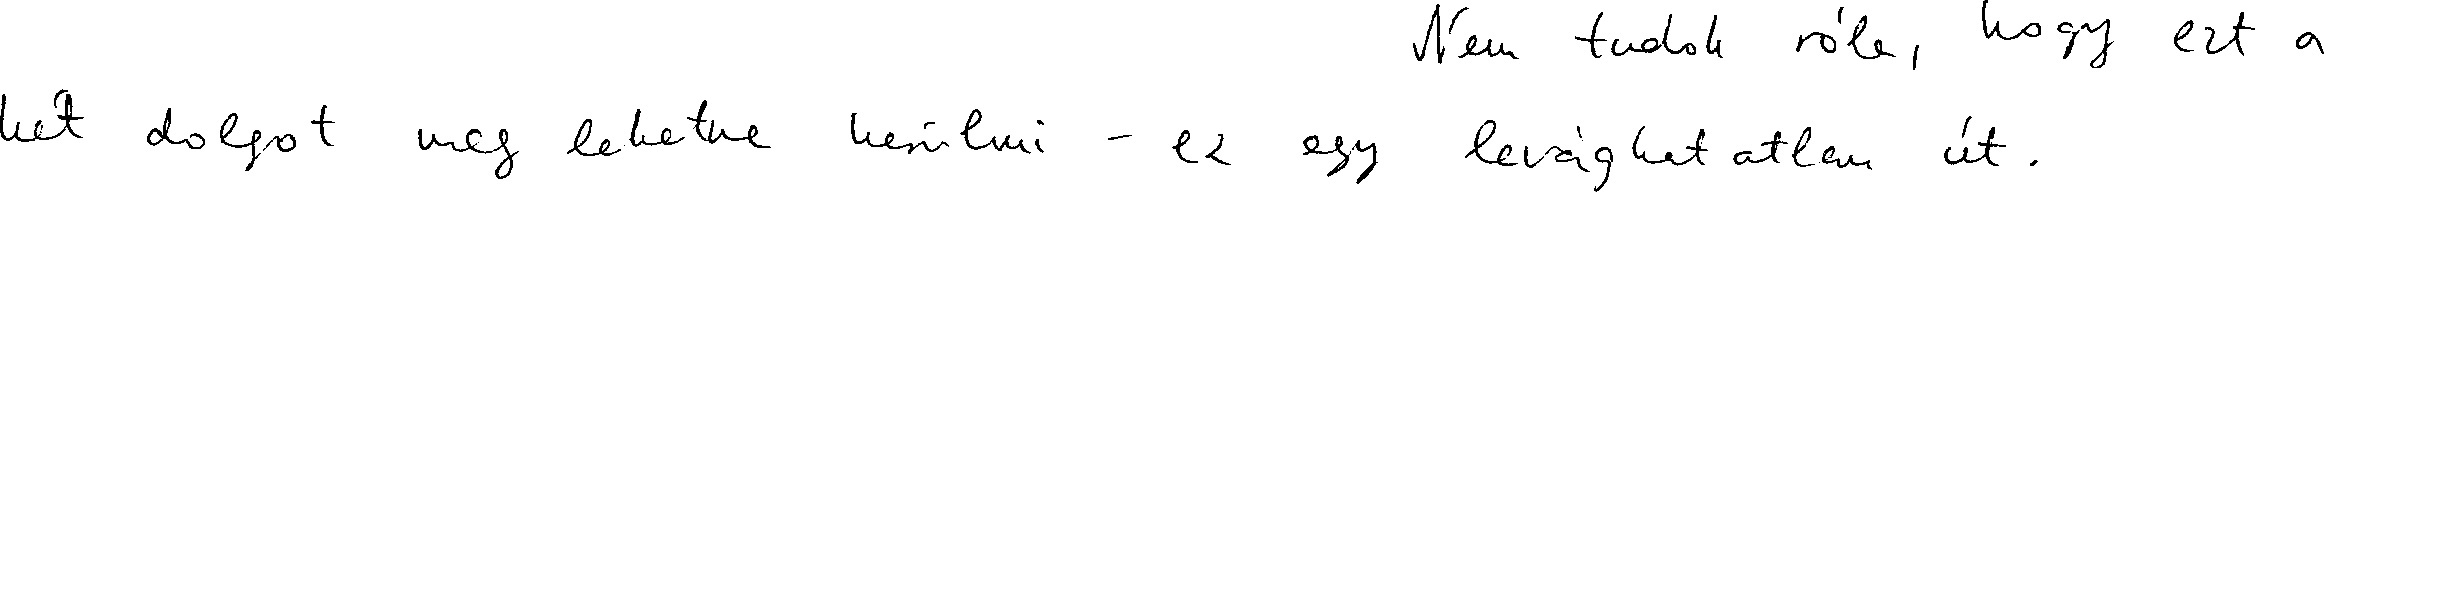 Nem tudok róla, hogy ezt a
két dolgot meg lehetne kerülni - ez egy levághatatlan út.